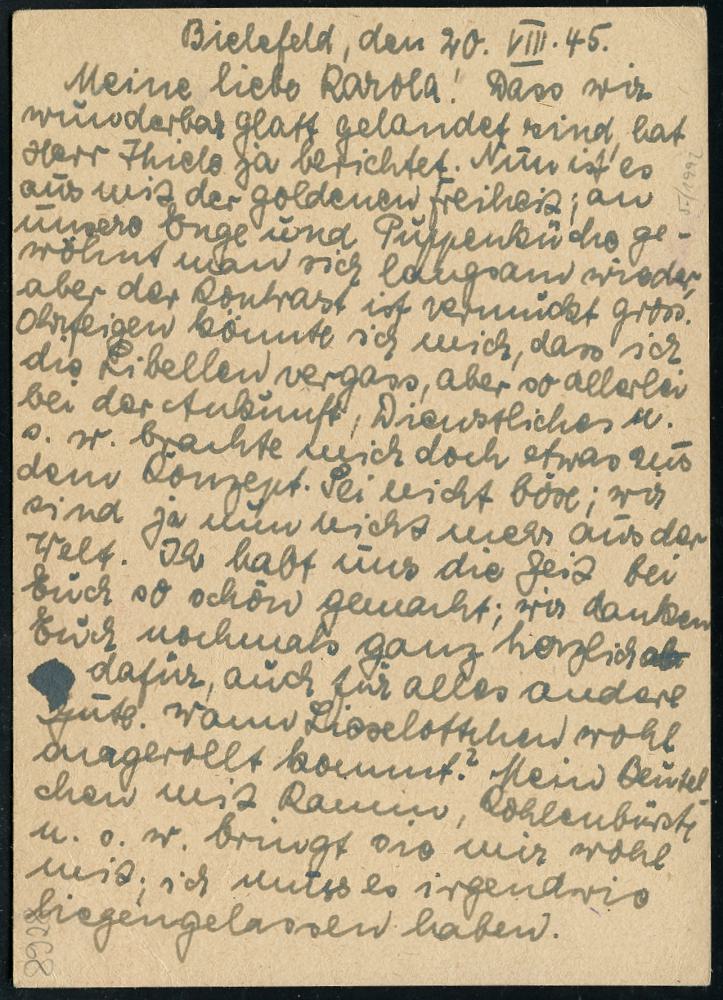 Bielefeld, den 20. VIII. 45.
Meine liebe Karola! Dass wir
wunderbar glatt gelandet sind, hat
Herr Thiele ja berichtet. Nun ist es
aus mit der goldenen Freiheit; an
unsere Enge und Puppenküche ge-
wöhnt man sich langsam wieder,
aber der Kontrast ist verrückt gross.
Ohrfeigen könnte ich mich, dass ich
die Libellen vergass, aber so allerlei
bei der Ankunft, Dienstliches u.
s. w. brachte mich doch etwas aus
dem Konzept. Sei nicht böse; wir
sind ja nun nicht mehr aus der
Welt. Ihr habt uns die Zeit bei
Euch so schön gemacht; wir danken
Euch nochmals ganz herzlich
dafür, auch für alles andere
Gute. Wann Lieselottchen wohl
angerollt kommt? Mein Beutel
chen mit Kamm, Kohlenbürste
u. s. w. bringt sie mir wohl
mit; ich muss es irgendwie
liegengelassen haben.
5/1992